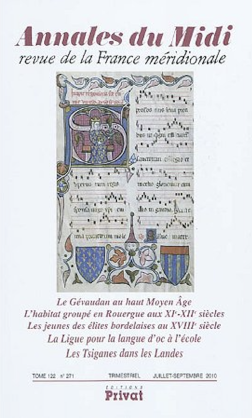 Annales du Midi
revue de la France méridionale
Le Gévaudan au haut Moyen Âge
L'habitat groupé en Rouergue aux XIe-XIIe siècles
Les jeunes des élites bordelaises au XVIIIe siècle
La Ligue pour la langue d'oc à l'école
Les Tsiganes dans les Landes
TOME 122 n° 271 TRIMESTRIEL JUILLET-SEPTEMBRE 2010
EDITIONS
Privat